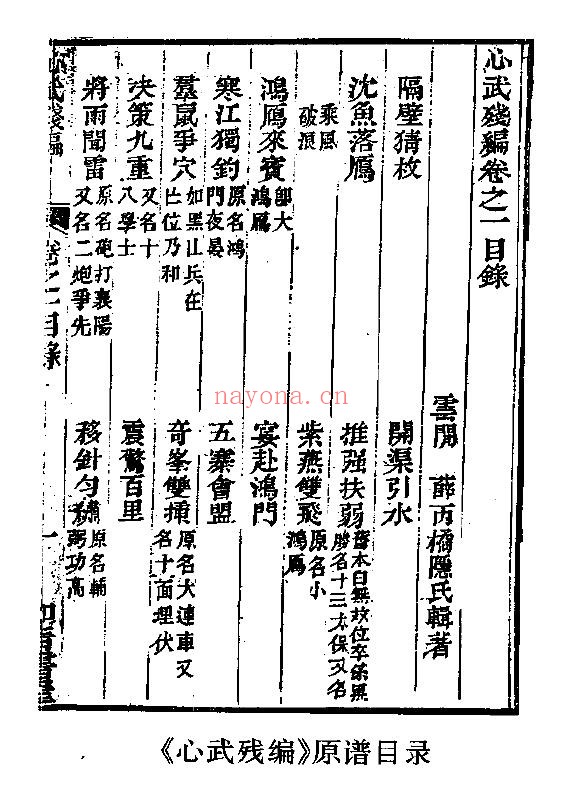 心武殘編卷之一目錄
雲間 薛丙橘隱氏輯著
隔壁猜枚 開渠引水
沈魚落鴈 推强扶弱 舊本白無故位卒係黑勝名十三太保又名
乘風破浪 紫燕雙飛 原名小鴻鴈
鴻鴈來賓 大鴻鴈 宴赴鴻門
寒江獨釣 原名鴻門夜晏 五寨會盟
羣鼠爭穴 如黑江兵在亡位乃和 奇峯雙插 原名大連車又名十面埋伏
決策九重 又名十八學士 震驚百里
將雨聞雷 原名砲打襄陽又名二炮爭先 移針勻繡 原名輔弼功高
心武殘編 卷之一目錄 一
nayona.cn
《心武残编》原谱目录